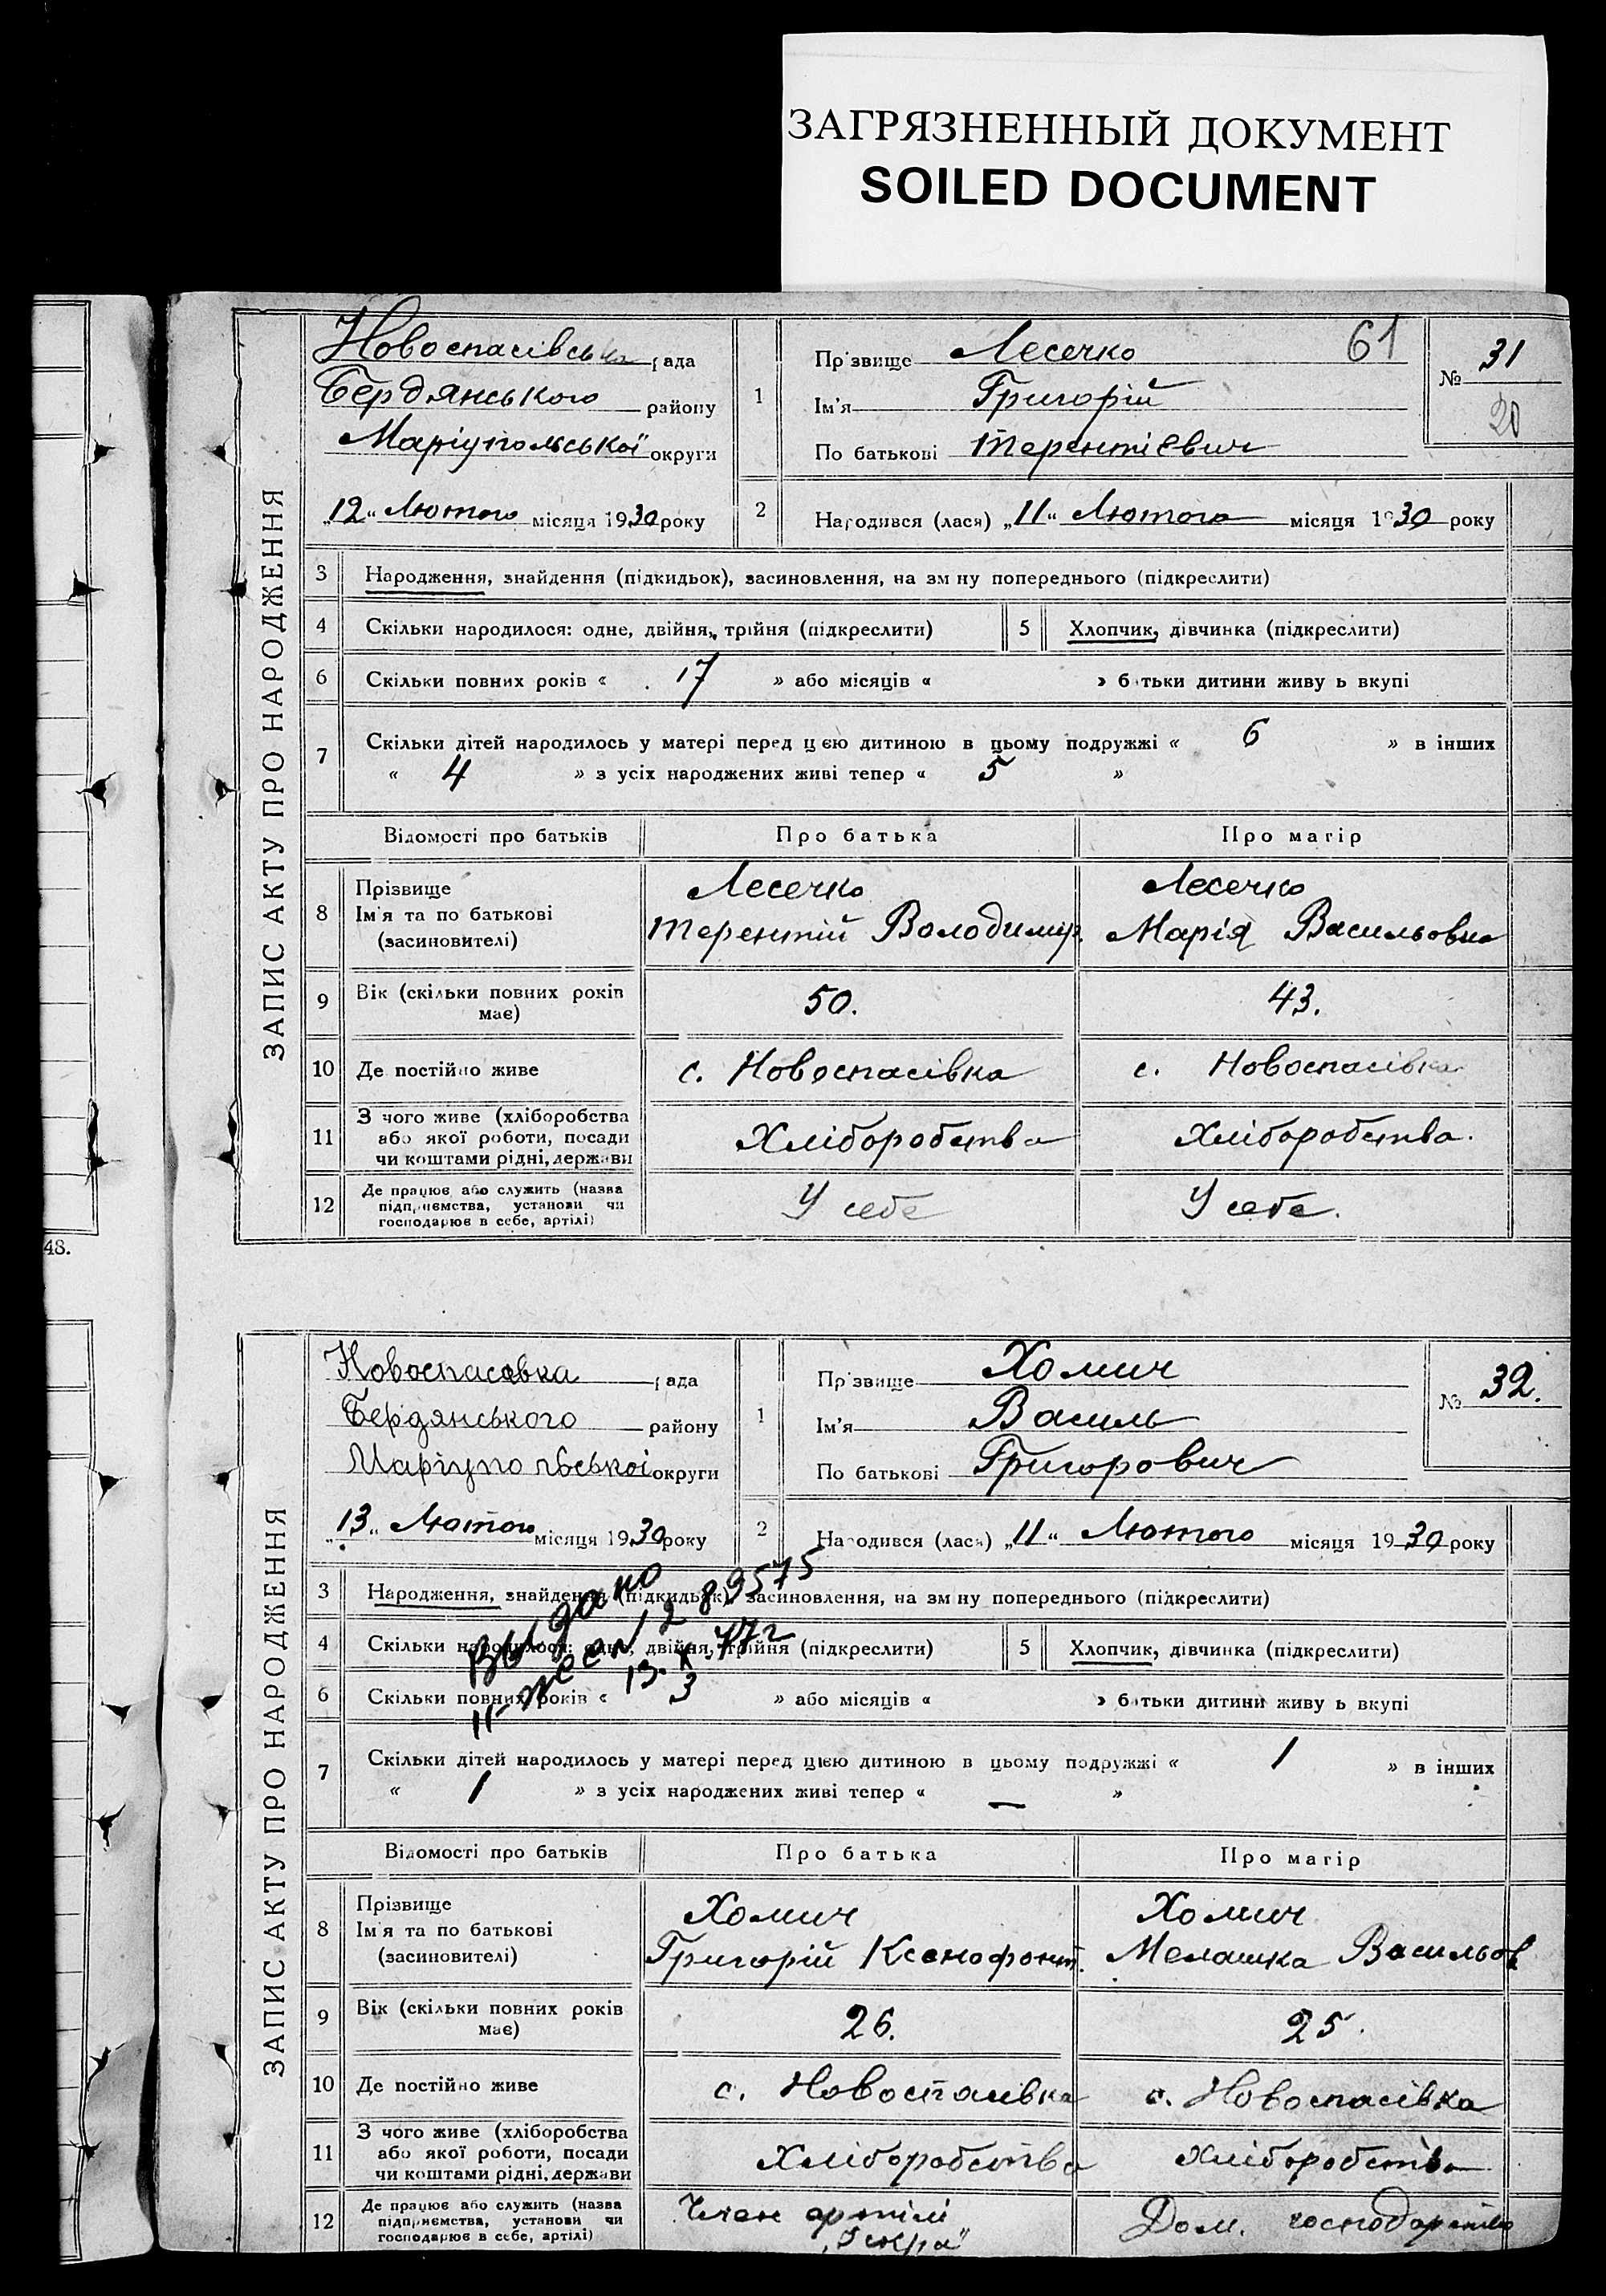 ЗАГРЯЗНЕННЫЙ ДОКУМЕНТ
SOILED DOCUMENT
ЗАПИС АКТУ ПРО НАРОДЖЕННЯ
Новоспасівська рада
Бердянського району
Маріупольської округи
„12“ Лютого місяця 1930 року
1
Прізвище Лесечко
61
Ім'я Григорій
По батькові Терентієвич
№ 31
20
2
Народився (лася) „11“ Лютого місяця 1930 року
3 Народження, знайдення (підкидьок), засиновлення, на зміну попереднього (підкреслити)
4 Скільки народилося: одне, двійня, трійня (підкреслити) 5 Хлопчик, дівчинка (підкреслити)
6 Скільки повних років « 17 » або місяців « » батьки дитини живуть вкупі
7 Скільки дітей народилось у матері перед цією дитиною в цьому подружжі « 6 » в інших
« 4 » з усіх народжених живі тепер « 5 »
Відомості про батьків Про батька Про матір
8 Прізвище Лесечко Лесечко
Ім'я та по батькові Терентій Володимир. Марія Васильовна
(засиновителі)
9 Вік (скільки повних років має) 50. 43.
10 Де постійно живе с. Новоспасівка с. Новоспасівка
11 З чого живе (хліборобства
або якої роботи, посади Хліборобства Хліборобства.
чи коштами рідні, держави
12 Де працює або служить (назва
підприємства, установи чи У себе У себе.
господарює в себе, артілі)
48.
ЗАПИС АКТУ ПРО НАРОДЖЕННЯ
Новоспасовка рада
Бердянського району
Маріупольської округи
„13“ Лютого місяця 1930 року
1
Прізвище Хомич
Ім'я Василь
По батькові Григорович
№ 32.
2
Народився (лася) „11“ Лютого місяця 1930 року
3 Народження, знайдення (підкидьок), засиновлення, на зміну попереднього (підкреслити)
4 Скільки народилося: одне, двійня, трійня (підкреслити) 5 Хлопчик, дівчинка (підкреслити)
6 Скільки повних років « 3 » або місяців « » батьки дитини живуть вкупі
Выдано
289575
13.X.77г
7 Скільки дітей народилось у матері перед цією дитиною в цьому подружжі « 1 » в інших
« 1 » з усіх народжених живі тепер « — »
Відомості про батьків Про батька Про матір
8 Прізвище Хомич Хомич
Ім'я та по батькові Григорій Ксенофонт. Мелашка Васильов
(засиновителі)
9 Вік (скільки повних років має) 26. 25.
10 Де постійно живе с. Новоспасівка с. Новоспасівка
11 З чого живе (хліборобства
або якої роботи, посади Хліборобства Хліборобства
чи коштами рідні, держави
12 Де працює або служить (назва Член артілі Дом. господарство
підприємства, установи чи „Іскра“
господарює в себе, артілі)